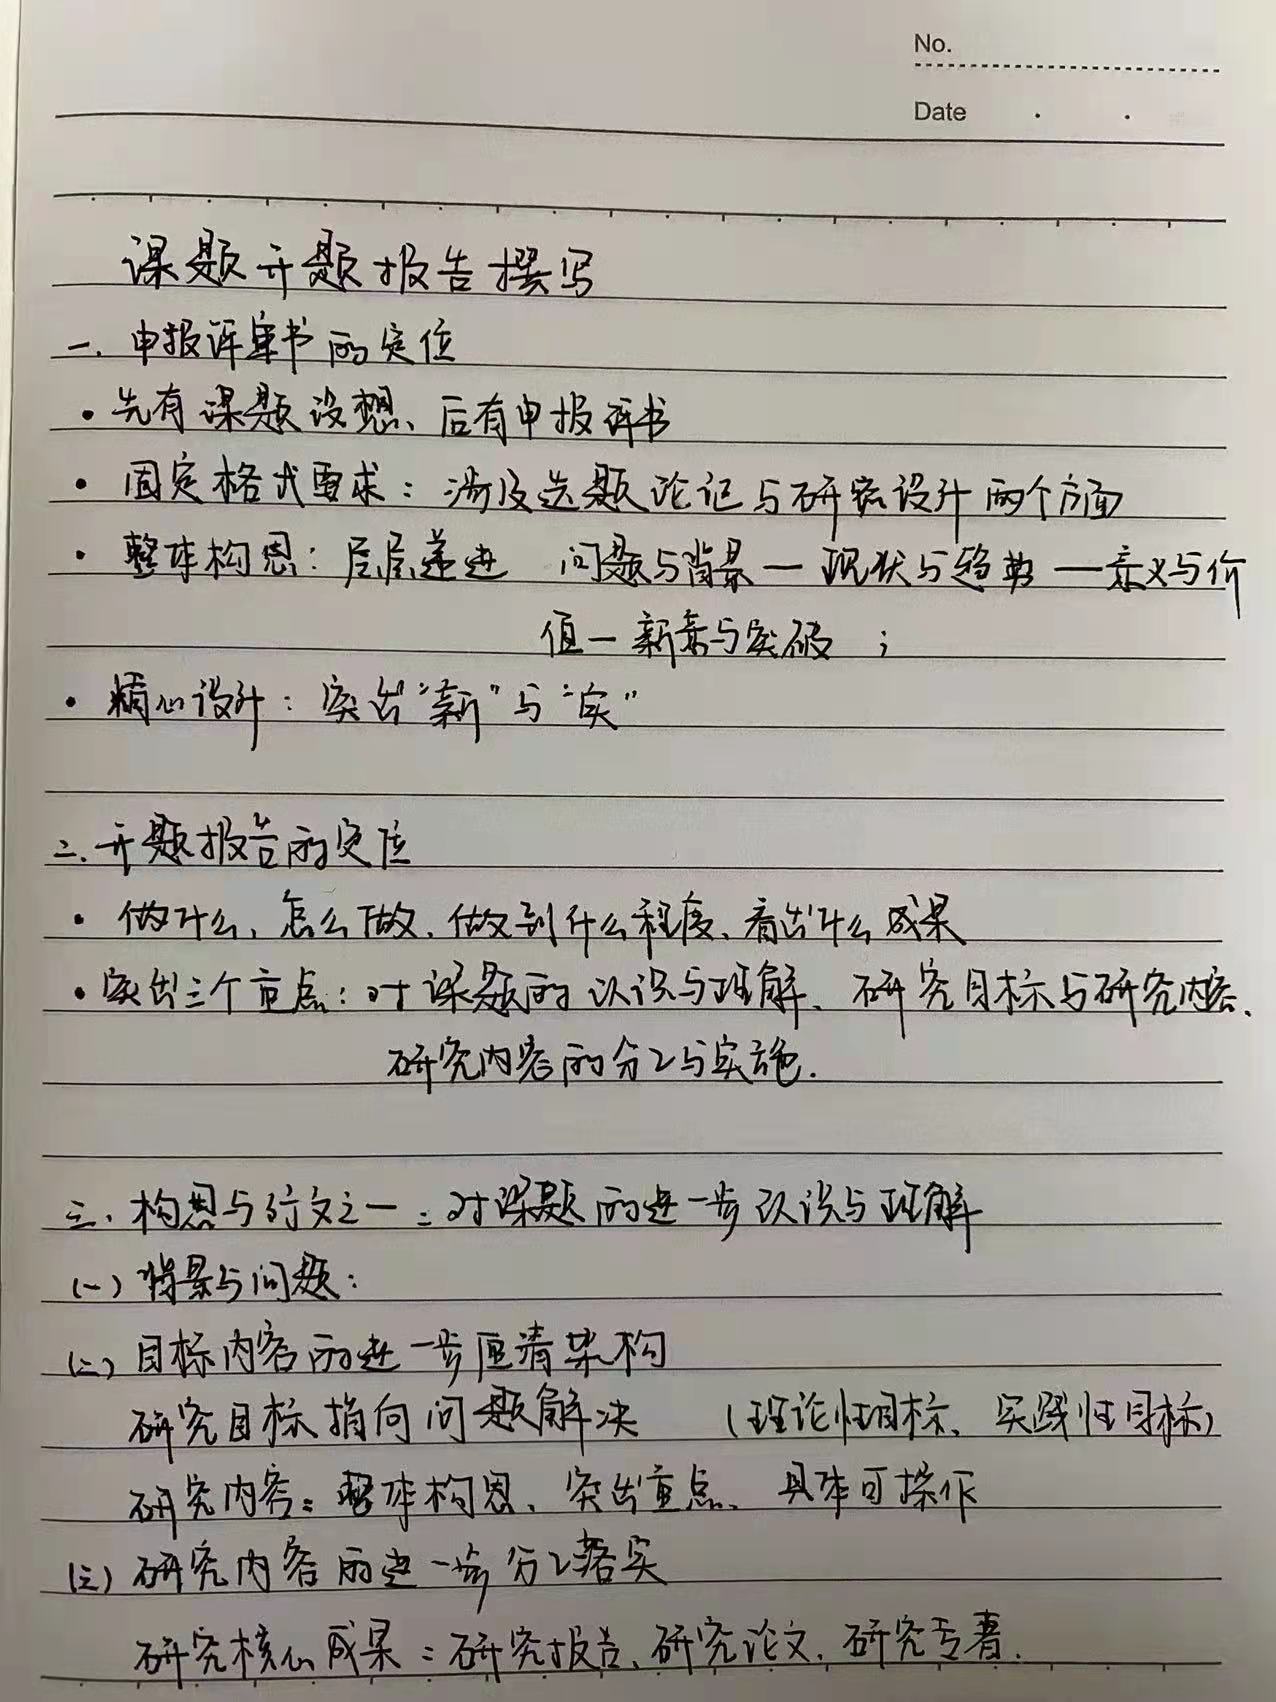 No.
Date
课题开题报告撰写
一. 申报评审书的定位
· 先有课题设想、后有申报评书
· 固定格式要求：涉及选题论证与研究设计两个方面
· 整体构思：层层递进 问题与背景—现状与趋势—意义与价
值—新意与突破；
· 精心设计：突出“新”与“实”
二. 开题报告的定位
· 做什么、怎么做、做到什么程度、看出什么成果
· 突出三个重点：对课题的认识与理解、研究目标与研究内容、
研究内容的分工与实施.
三. 构思与行文之一：对课题的进一步认识与理解
(一) 背景与问题：
(二) 目标内容的进一步厘清架构
研究目标指向问题解决 (理论性目标、实践性目标)
研究内容：整体构思、突出重点、具体可操作
(三) 研究内容的进一步分工落实
研究核心成果：研究报告、研究论文、研究专著.